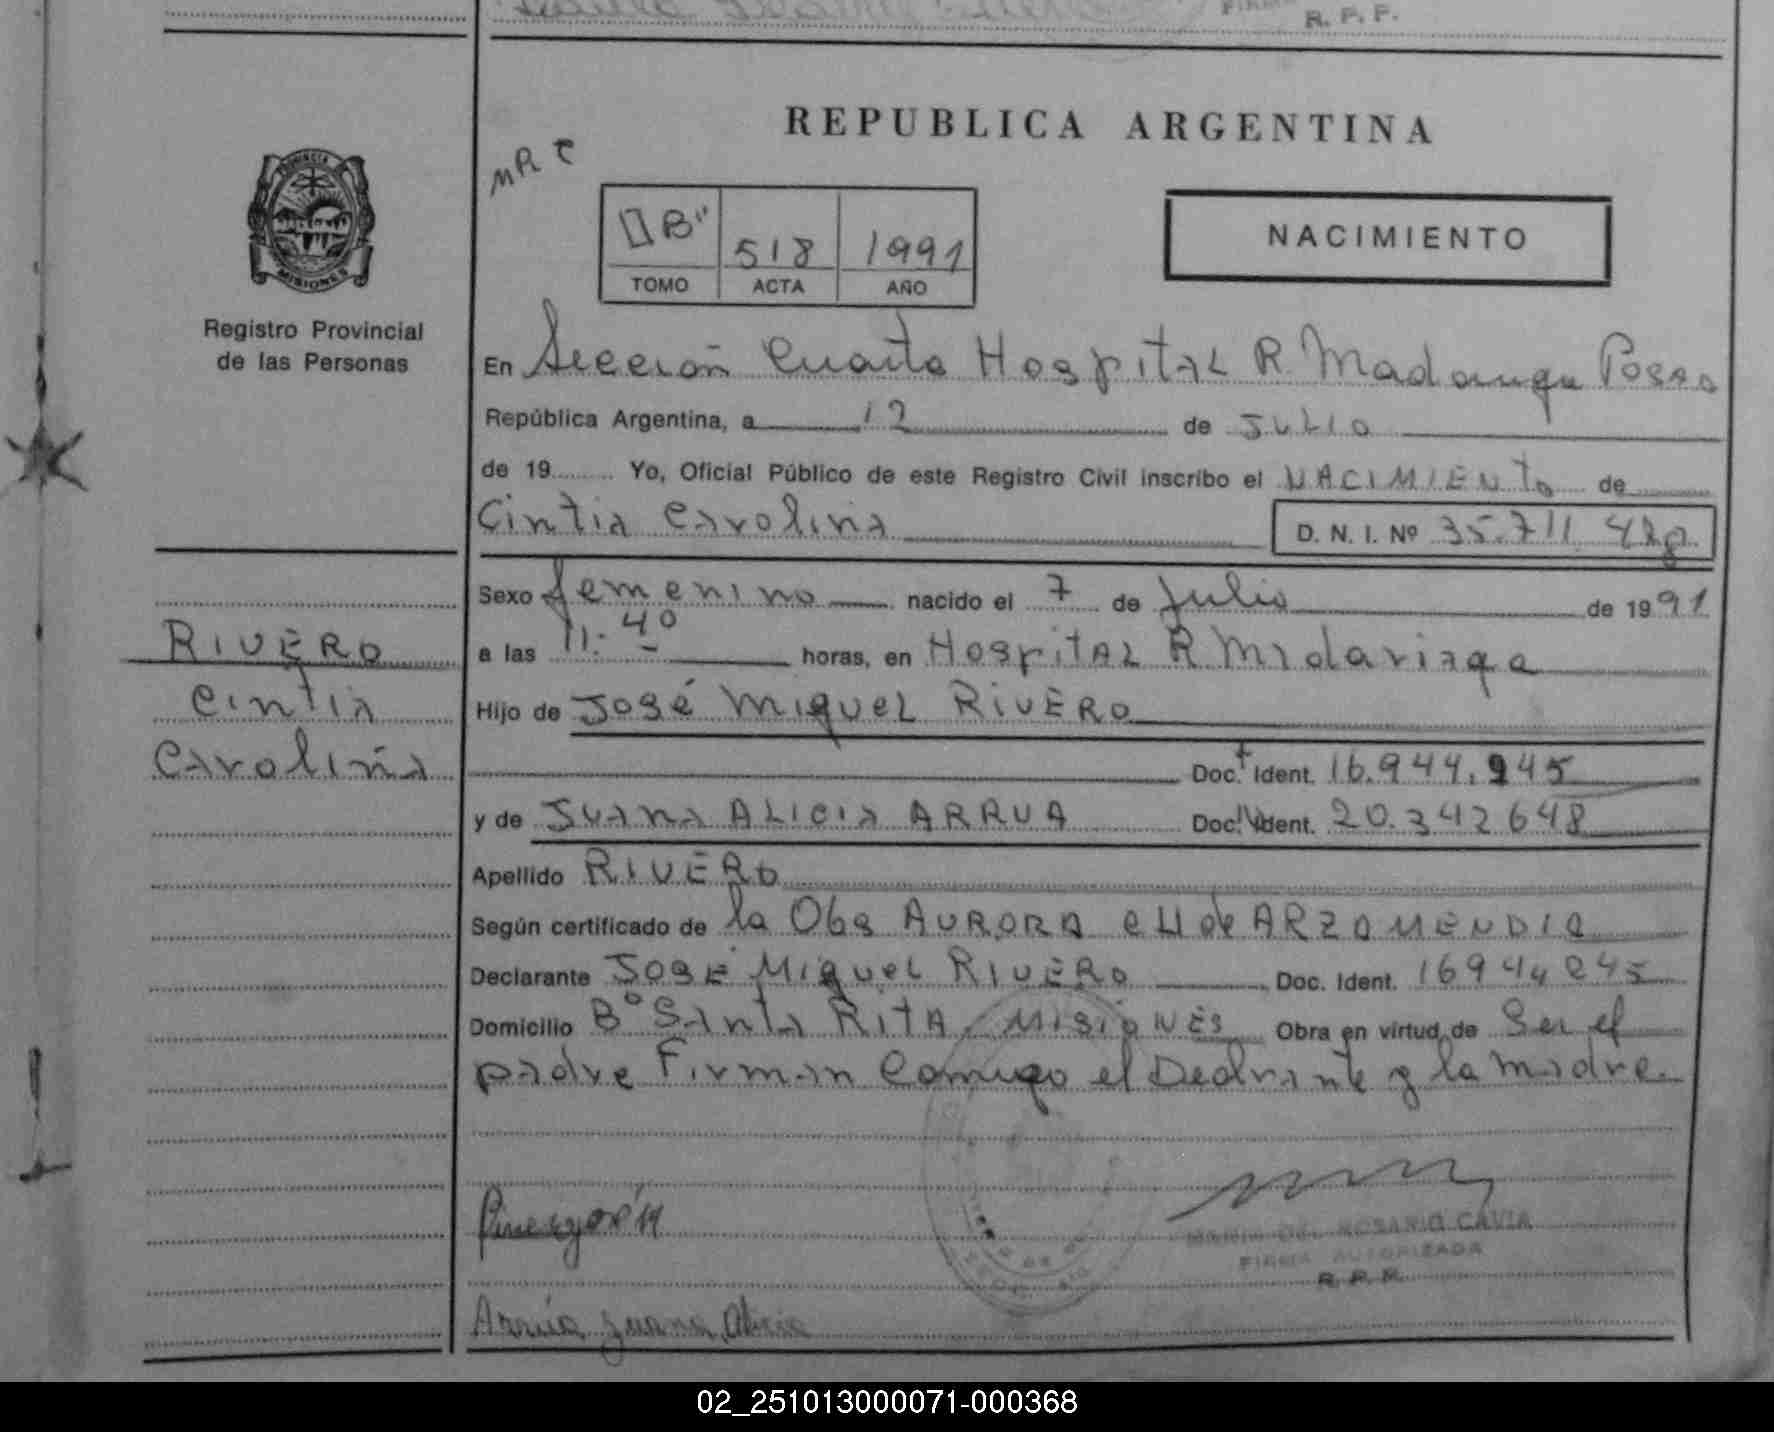 R. P. P.
REPUBLICA ARGENTINA
PROVINCIA
MISIONES
Registro Provincial
de las Personas
"B" 518 1991
TOMO ACTA AÑO
NACIMIENTO
En Sección Cuarta Hospital R. Madariaga Posas
República Argentina, a 12 de JULIO
de 19 Yo, Oficial Público de este Registro Civil inscribo el NACIMIENTO de
Cintia Carolina D. N. I. Nº 35.711.428
Sexo femenino nacido el 7 de Julio de 1991
a las 11.40 horas, en Hospital R Madariaga
Hijo de José Miguel RIVERO
Doc. Ident. 16.944.945
y de Juana ALICIA ARRUA Doc. Ident. 20.342648
Apellido RIVERO
Según certificado de la Obs AURORA CH de ARZAMENDIA
Declarante JOSE Miguel RIVERO Doc. Ident. 16944945
Domicilio Bº Santa RITA MISIONES Obra en virtud de Ser el
padre Firman Conmigo el Declrante y la madre.
RIVERO
Cintia
Carolina
MARIA DEL ROSARIO CAVIA
FIRMA AUTORIZADA
R. P. P.
Arrúa Juana Alicia
02_251013000071-000368